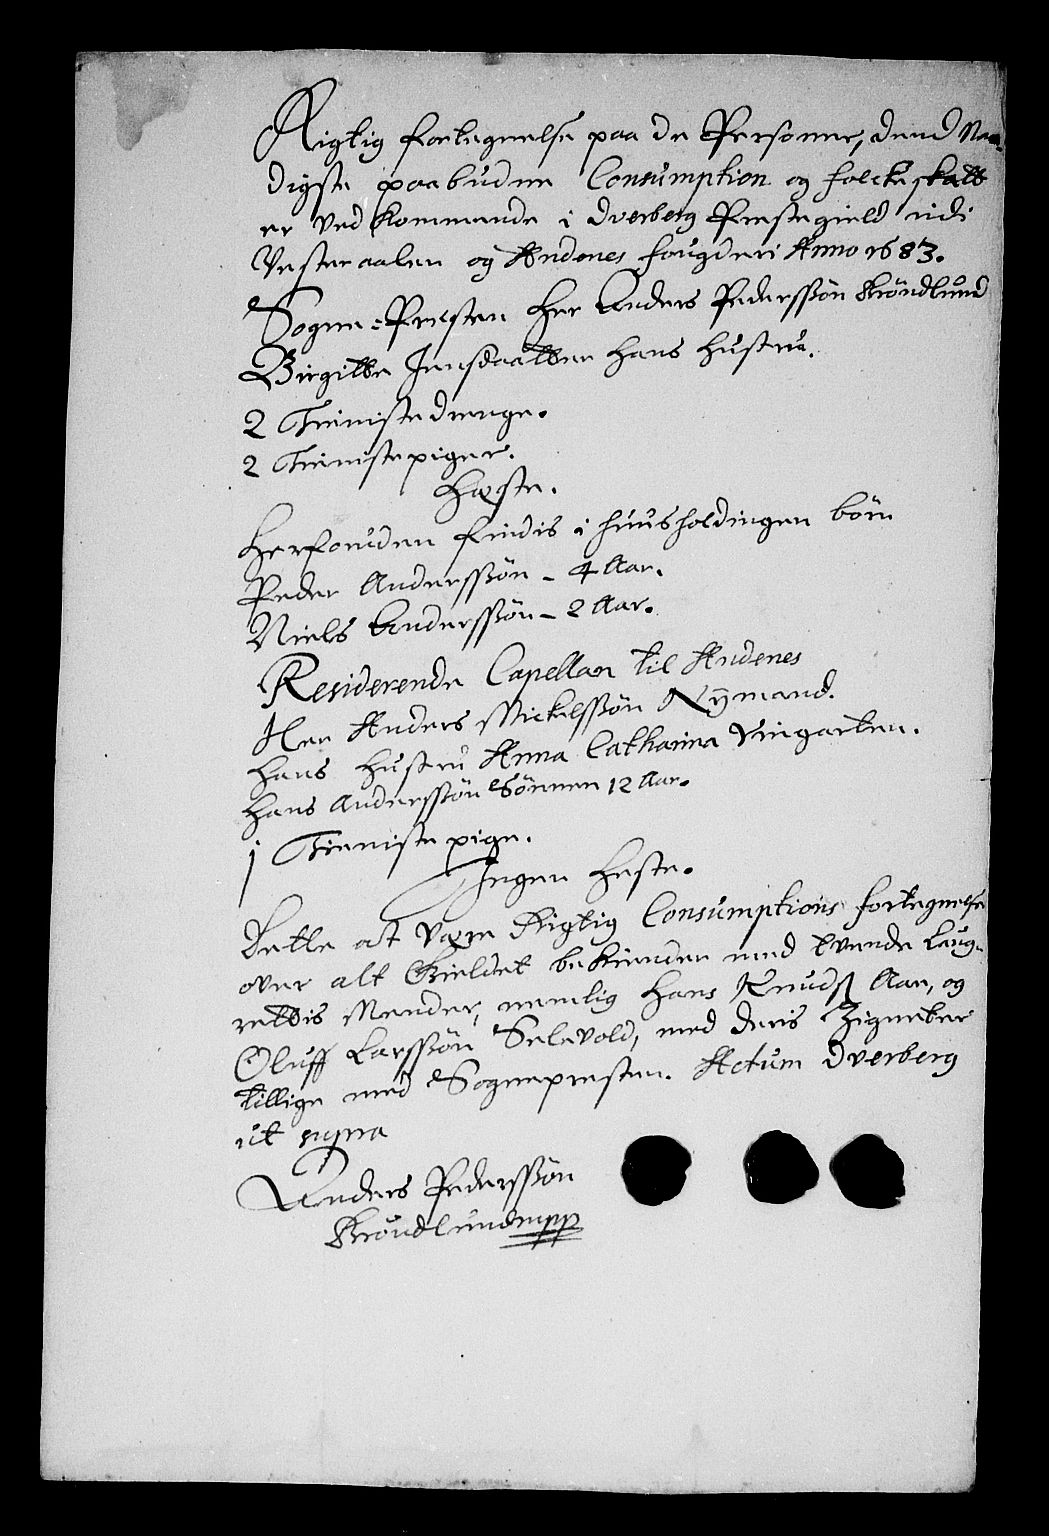 Rigtig fortegnelse paa de Personer, dend Naa-
digste paabudne Consumption og folcke skatt
er ved kommende i Dverberg Prestegield udi
Vesteraalen og Andenes fougderi Anno 1683.
Sogne-Presten Her Anders Pederssøn Krøndlund
Birgitte Jensdaatter hans hustru.
2 Tieniste drenge.
2 Tieniste piger.
Hæste.
Herforuden findis i huusholdingen børn
Peder Anderssøn - 4 Aar.
Niels Anderssøn - 2 Aar.
Residerende Capellan til Andenes
Her Anders Mickelssøn Nÿmand.
hans hustru Anna Catharina Vingarten.
Hans Anderssøn Sønnen 12 Aar.
j Tieniste pige.
Ingen heste.
Dette at være Rigtig Consumptions fortegnelse
over alt Gieldet bekiender med tvende Laug-
rettis Mender, nemlig Hans Knudsß Aar, og
Oluff Larssøn Selevold, med deris Zigneter
tillige med Sognepresten. Actum Dverberg
ut supra
Anders Pederssøn
Krøndlund mpp